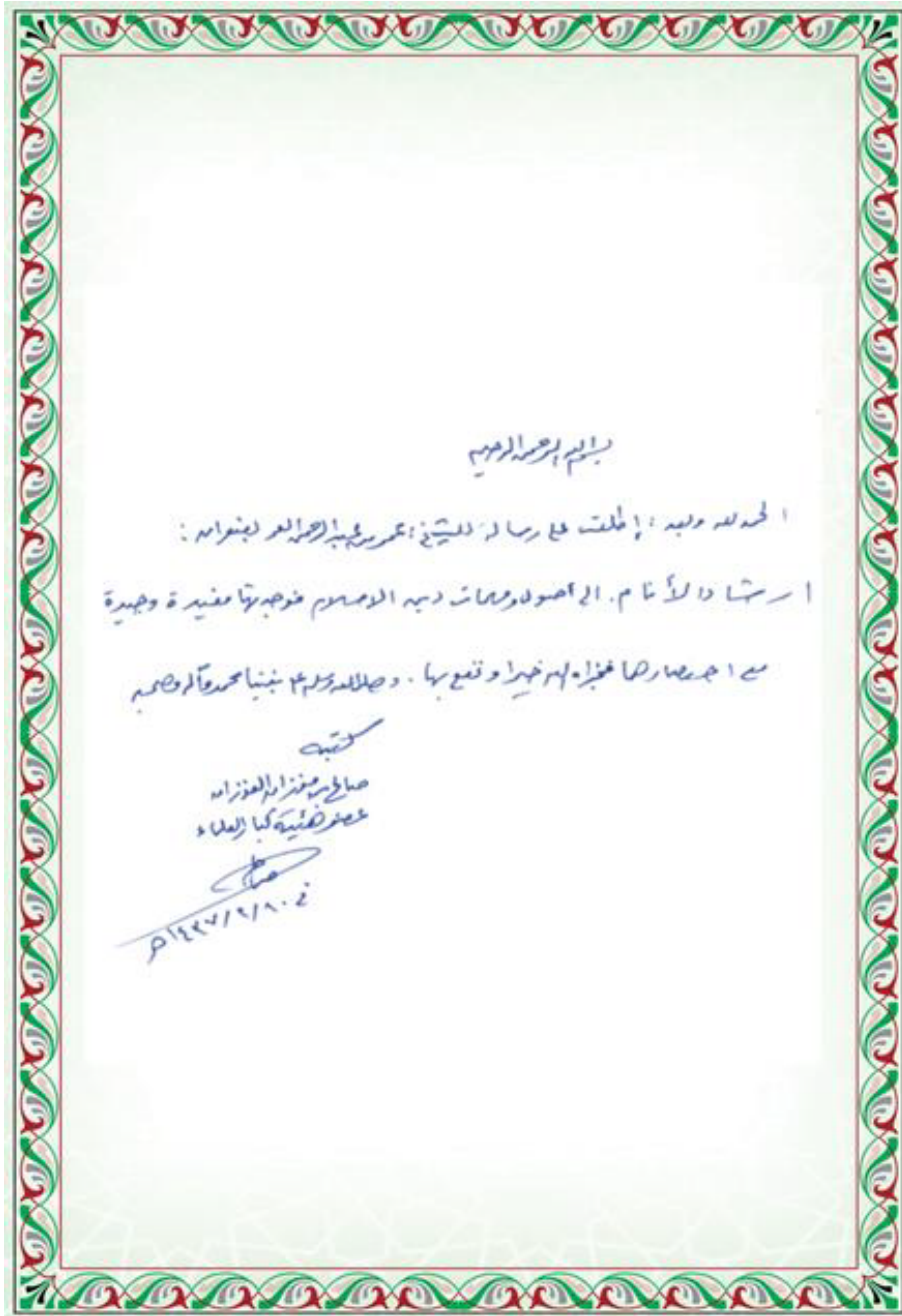 بسم الله الرحمن الرحيم
الحمد لله وبعد : اطلعت على رسالة للشيخ : عمر بن عبد الرحمن العمر بعنوان :
ارشاد الأنام. الى أصول ومهمات دين الاسلام فوجدتها مفيدة وجيدة
مع اختصارها فجزاه الله خيرا ونفع بها . وصلى الله وسلم على نبينا محمد وآله وصحبه
كتبه
صالح بن فوزان الفوزان
عضو هيئة كبار العلماء
في
١٤٣٧هـ